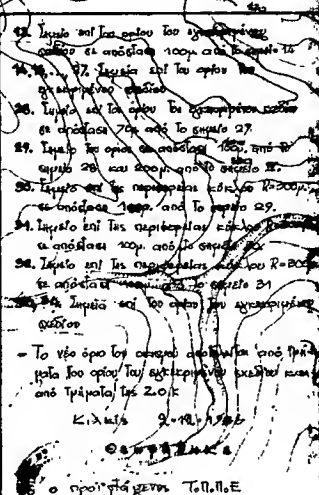 13. Σημείο επί του ορίου του εγκεκριμένου
σχεδίου σε απόσταση 100μ από το σημείο 14
27. Σημεία επί του ορίου του
εγκεκριμένου σχεδίου
28. Σημείο επί του ορίου του εγκεκριμένου σχεδίου
σε απόσταση 70μ από το σημείο 29.
29. Σημείο του ορίου σε απόσταση 100μ. από το
σημείο 28 και 200μ. από το σημείο
30. Σημείο επί της περιφερείας κύκλου R=300μ.
σε απόσταση 100μ. από το σημείο 29.
31. Σημείο επί της περιφερείας κύκλου
σε απόσταση 100μ. από το σημείο
32. Σημείο επί της περιφερείας κύκλου R=300
σε απόσταση από το σημείο 31
Σημεία επί του ορίου του εγκεκριμένου
σχεδίου
- Το νέο όριο του οικισμού αποτελείται από τμή-
ματα του ορίου του εγκεκριμένου σχεδίου και
από τμήματα της Ζ.Ο.Κ
Κιλκίς
Θεωρήθηκε
Ο προϊστάμενος Τ.Π.Π.Ε